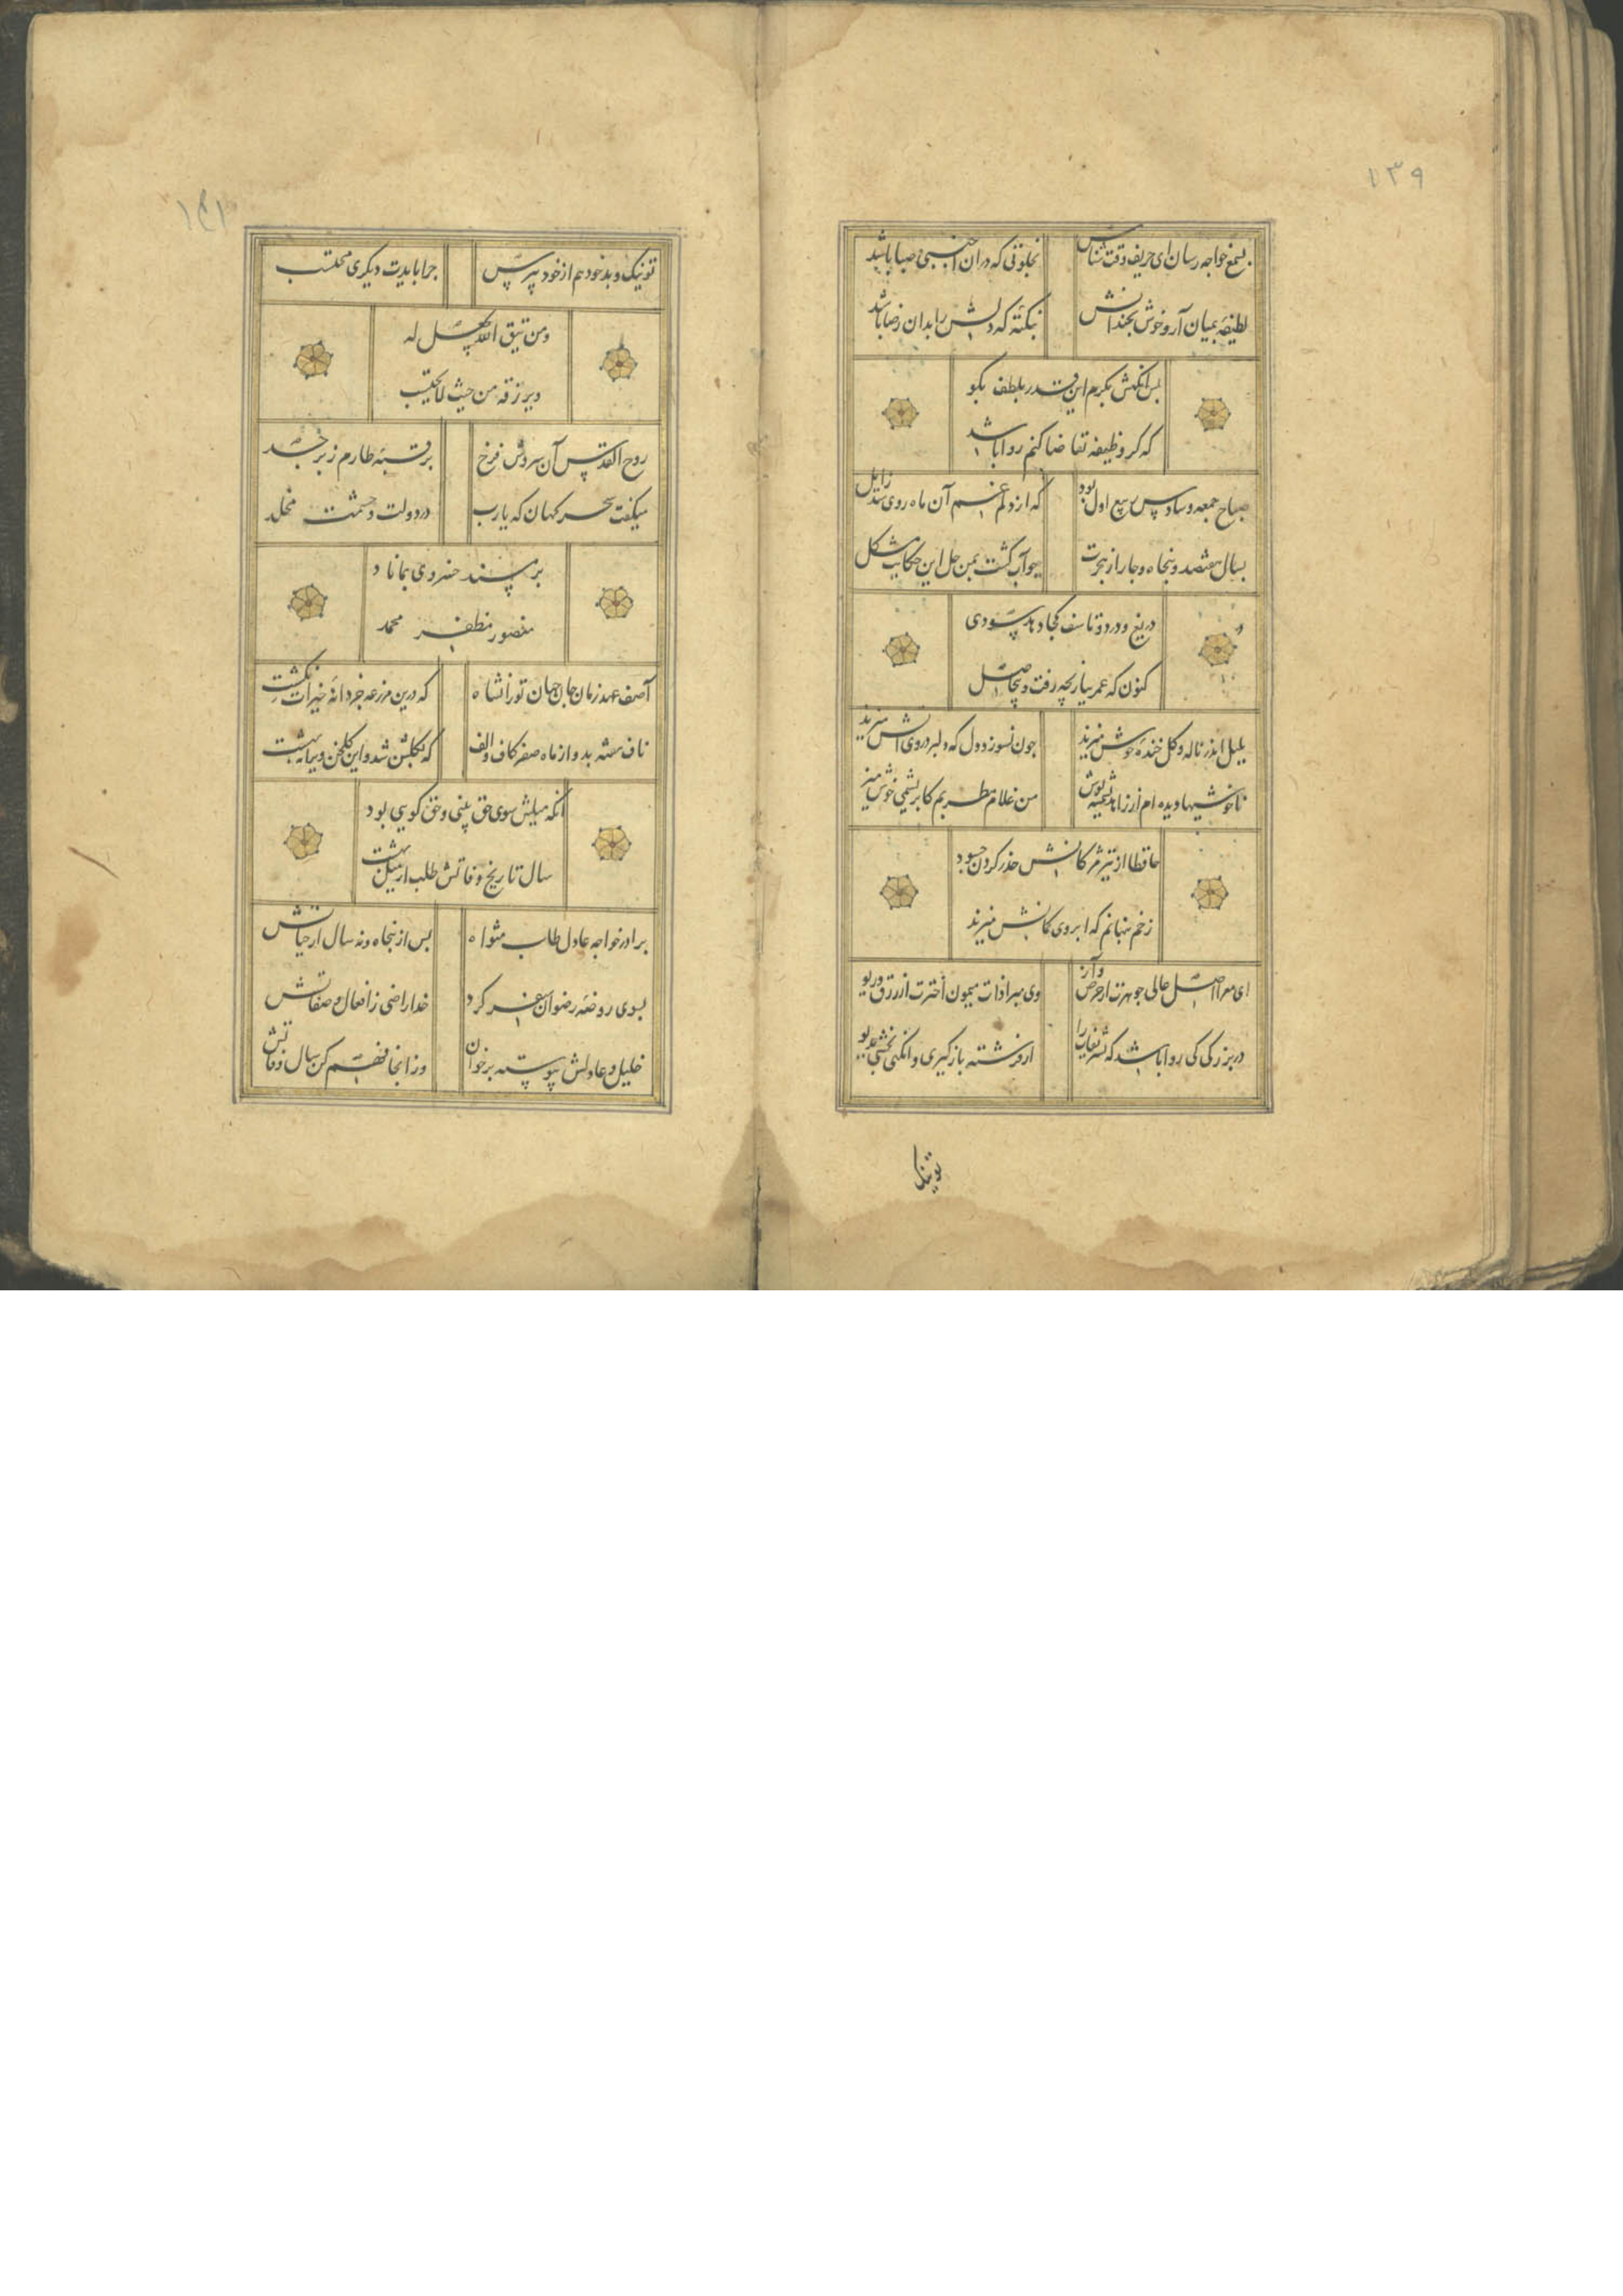 ۱۳۹
بسمع خواجه رسان ای حریف وقت شناس
بخلوتی که دران اجنبی صبا باشد
لطیفه بمیان آر و خوش بخندانش
بنکته که دلش را بدان رضا باشد
بس آنکهش بکرم این قدر بلطف بکو
که کر وظیفه تقاضا کنم روا باشد
صباح جمعه و سادس ربیع اول بود
که از دلم غم آن ماه روی شد زایل
بسال هفتصد و پنجاه و چار از هجرت
چو آب کشت بمن حل این حکایت مشکل
دریغ و درد و تاسف کجا دهد سودی
کنون که عمر ببازیچه رفت و بیحاصل
بلبل اندر ناله و کل خنده خوش میزند
چون نسوزد دل که دلبر دروی آتش میزند
ناخوشیها دیده ام از زاهد پشمینه پوش
من غلام مطربم کابریشمی خوش میزند
حافظا از تیر مژکانش حذر کردن چه سود
زخم پنهانم که ابروی کمانش میزند
ای معرا اصل عالی جوهرت از حرص و آز
وی مبرا ذات میمون اخترت از زرق و ریو
در بزرکی کی روا باشد که تشریفات را
از فرشته باز کیری وانکهی بخشی بدیو
تو نیک
۱۴۱
تو نیک و بد خود هم از خود بپرس
چرا بایدت دیکری محتسب
ومن یتق الله یجعل له
ویرزقه من حیث لا یحتسب
روح القدس آن سروش فرخ
بر قبه طارم زبرجد
میکفت سحر کهان که یارب
در دولت و حشمت مخلد
بر مسند خسروی بماناد
منصور مظفر محمد
آصف عهد زمان جان جهان تورانشاه
که درین مزرعه جز دانه خیرات نکشت
ناف هفته بد و از ماه صفر کاف و الف
که بکلشن شد و این کلخن ویرانه بهشت
آنکه میلش سوی حق بینی و حق کویی بود
سال تاریخ وفاتش طلب از میل بهشت
برادر خواجه عادل طاب مثواه
بس از پنجاه و نه سال از حیاتش
بسوی روضه رضوان سفر کرد
خدا راضی ز افعال و صفاتش
خلیل و عادلش پیوسته برخوان
وز انجا فهم کن سال وفاتش